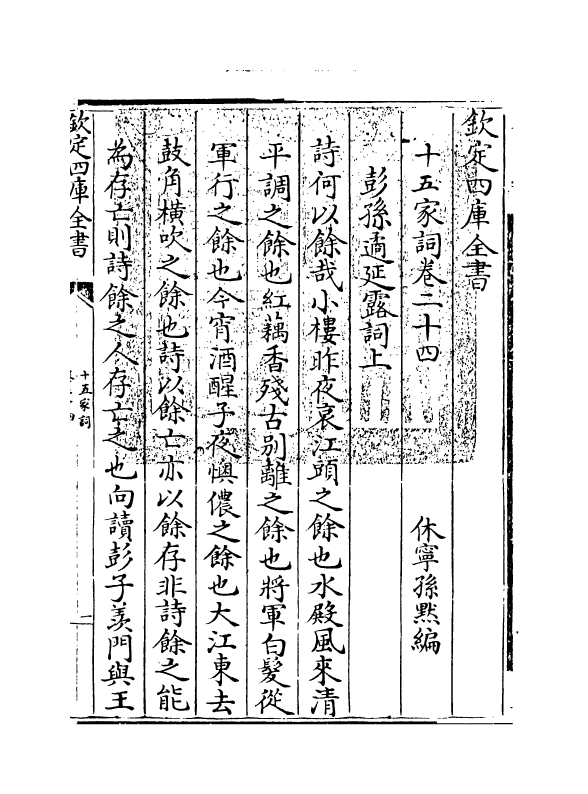 欽定四庫全書
十五家詞卷二十四
休寧孫黙編
彭孫遹延露詞上
詩何以餘哉小樓昨夜哀江頭之餘也水殿風來清
平調之餘也紅藕香殘古别離之餘也將軍白髮從
軍行之餘也今宵酒醒子夜懊儂之餘也大江東去
鼓角橫吹之餘也詩以餘亡亦以餘存非詩餘之能
為存亡則詩餘之人存亡之也向讀彭子羨門與王
欽定四庫全書
十五家詞